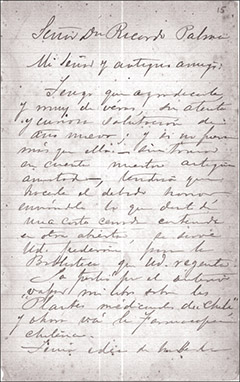 15
Señor Dn Ricardo Palma
Mi Señor y antiguo amigo:
Tengo que agradecerle
y muy de veras, su atenta
y curiosa salutacion de
año nuevo; y si no fuera
más que ella, sin tomar
en cuenta nuestra antigua
amistad, tendria que
hacerle el debido honor
enviandole lo que
una carta
en otra abierta, se sirvió
Ud. pedirme para la
Biblioteca que Ud. regenta.
La por el anterior
vapor mi libro sobre las
"Plantas medicinales de Chile"
y ahora vá la Farmacopea
chilena.
Tengo idea de